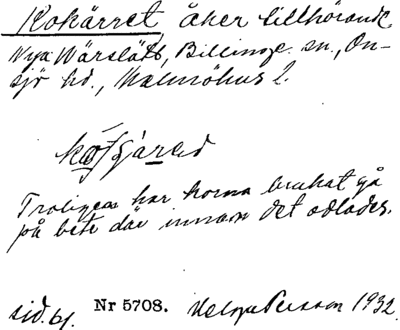 Kokärret, åker tillhörande
Nya Wärslätt, Billinge sn., On-
sjö hd., Malmöhus l.
Troligen har korna brukat gå
på bete där innan det odlades.
sid. 61. Nr 5708. Helge Persson 1932.